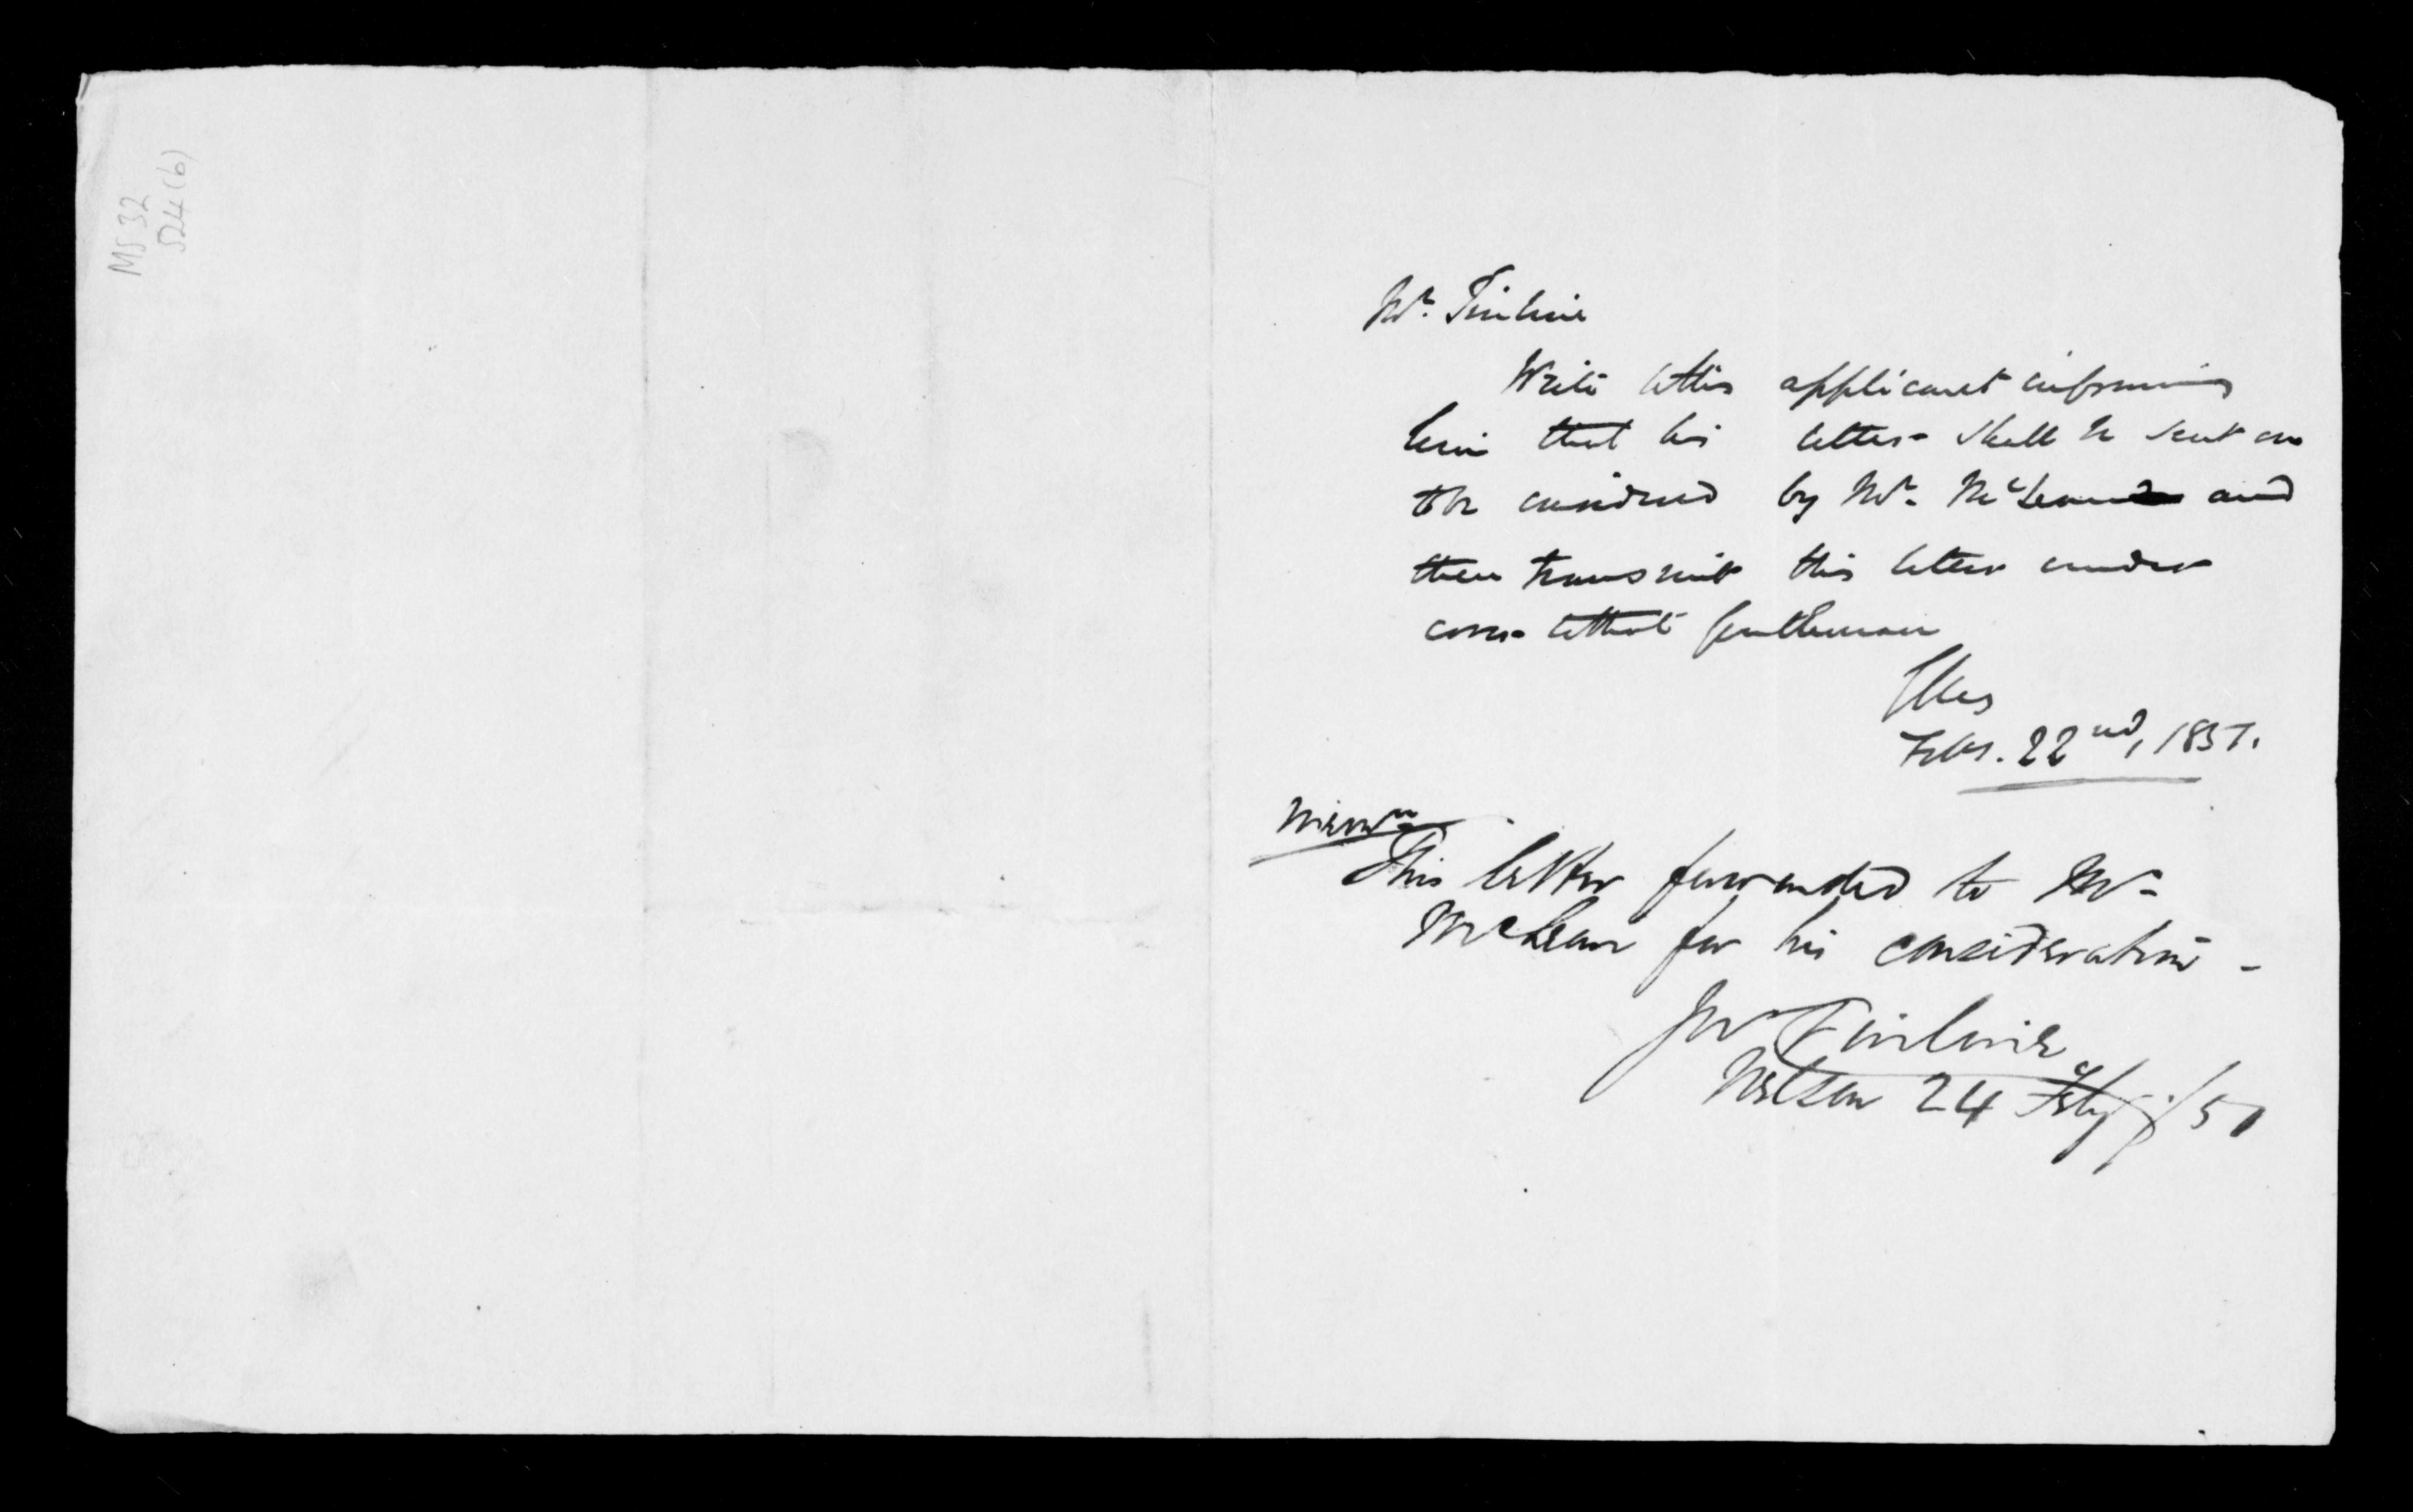 MS 32
524 (b)
Mr. Tinline
Write to this applicant informing
him that his letter shall be sent on
to be considered by Mr. McLean and
then transmit this letter under
cover to that gentleman
Febr. 22nd, 1851.
Memo
This letter forwarded to Mr
McLean for his consideration -
Jno Tinline
Nelson 24 Feby /51